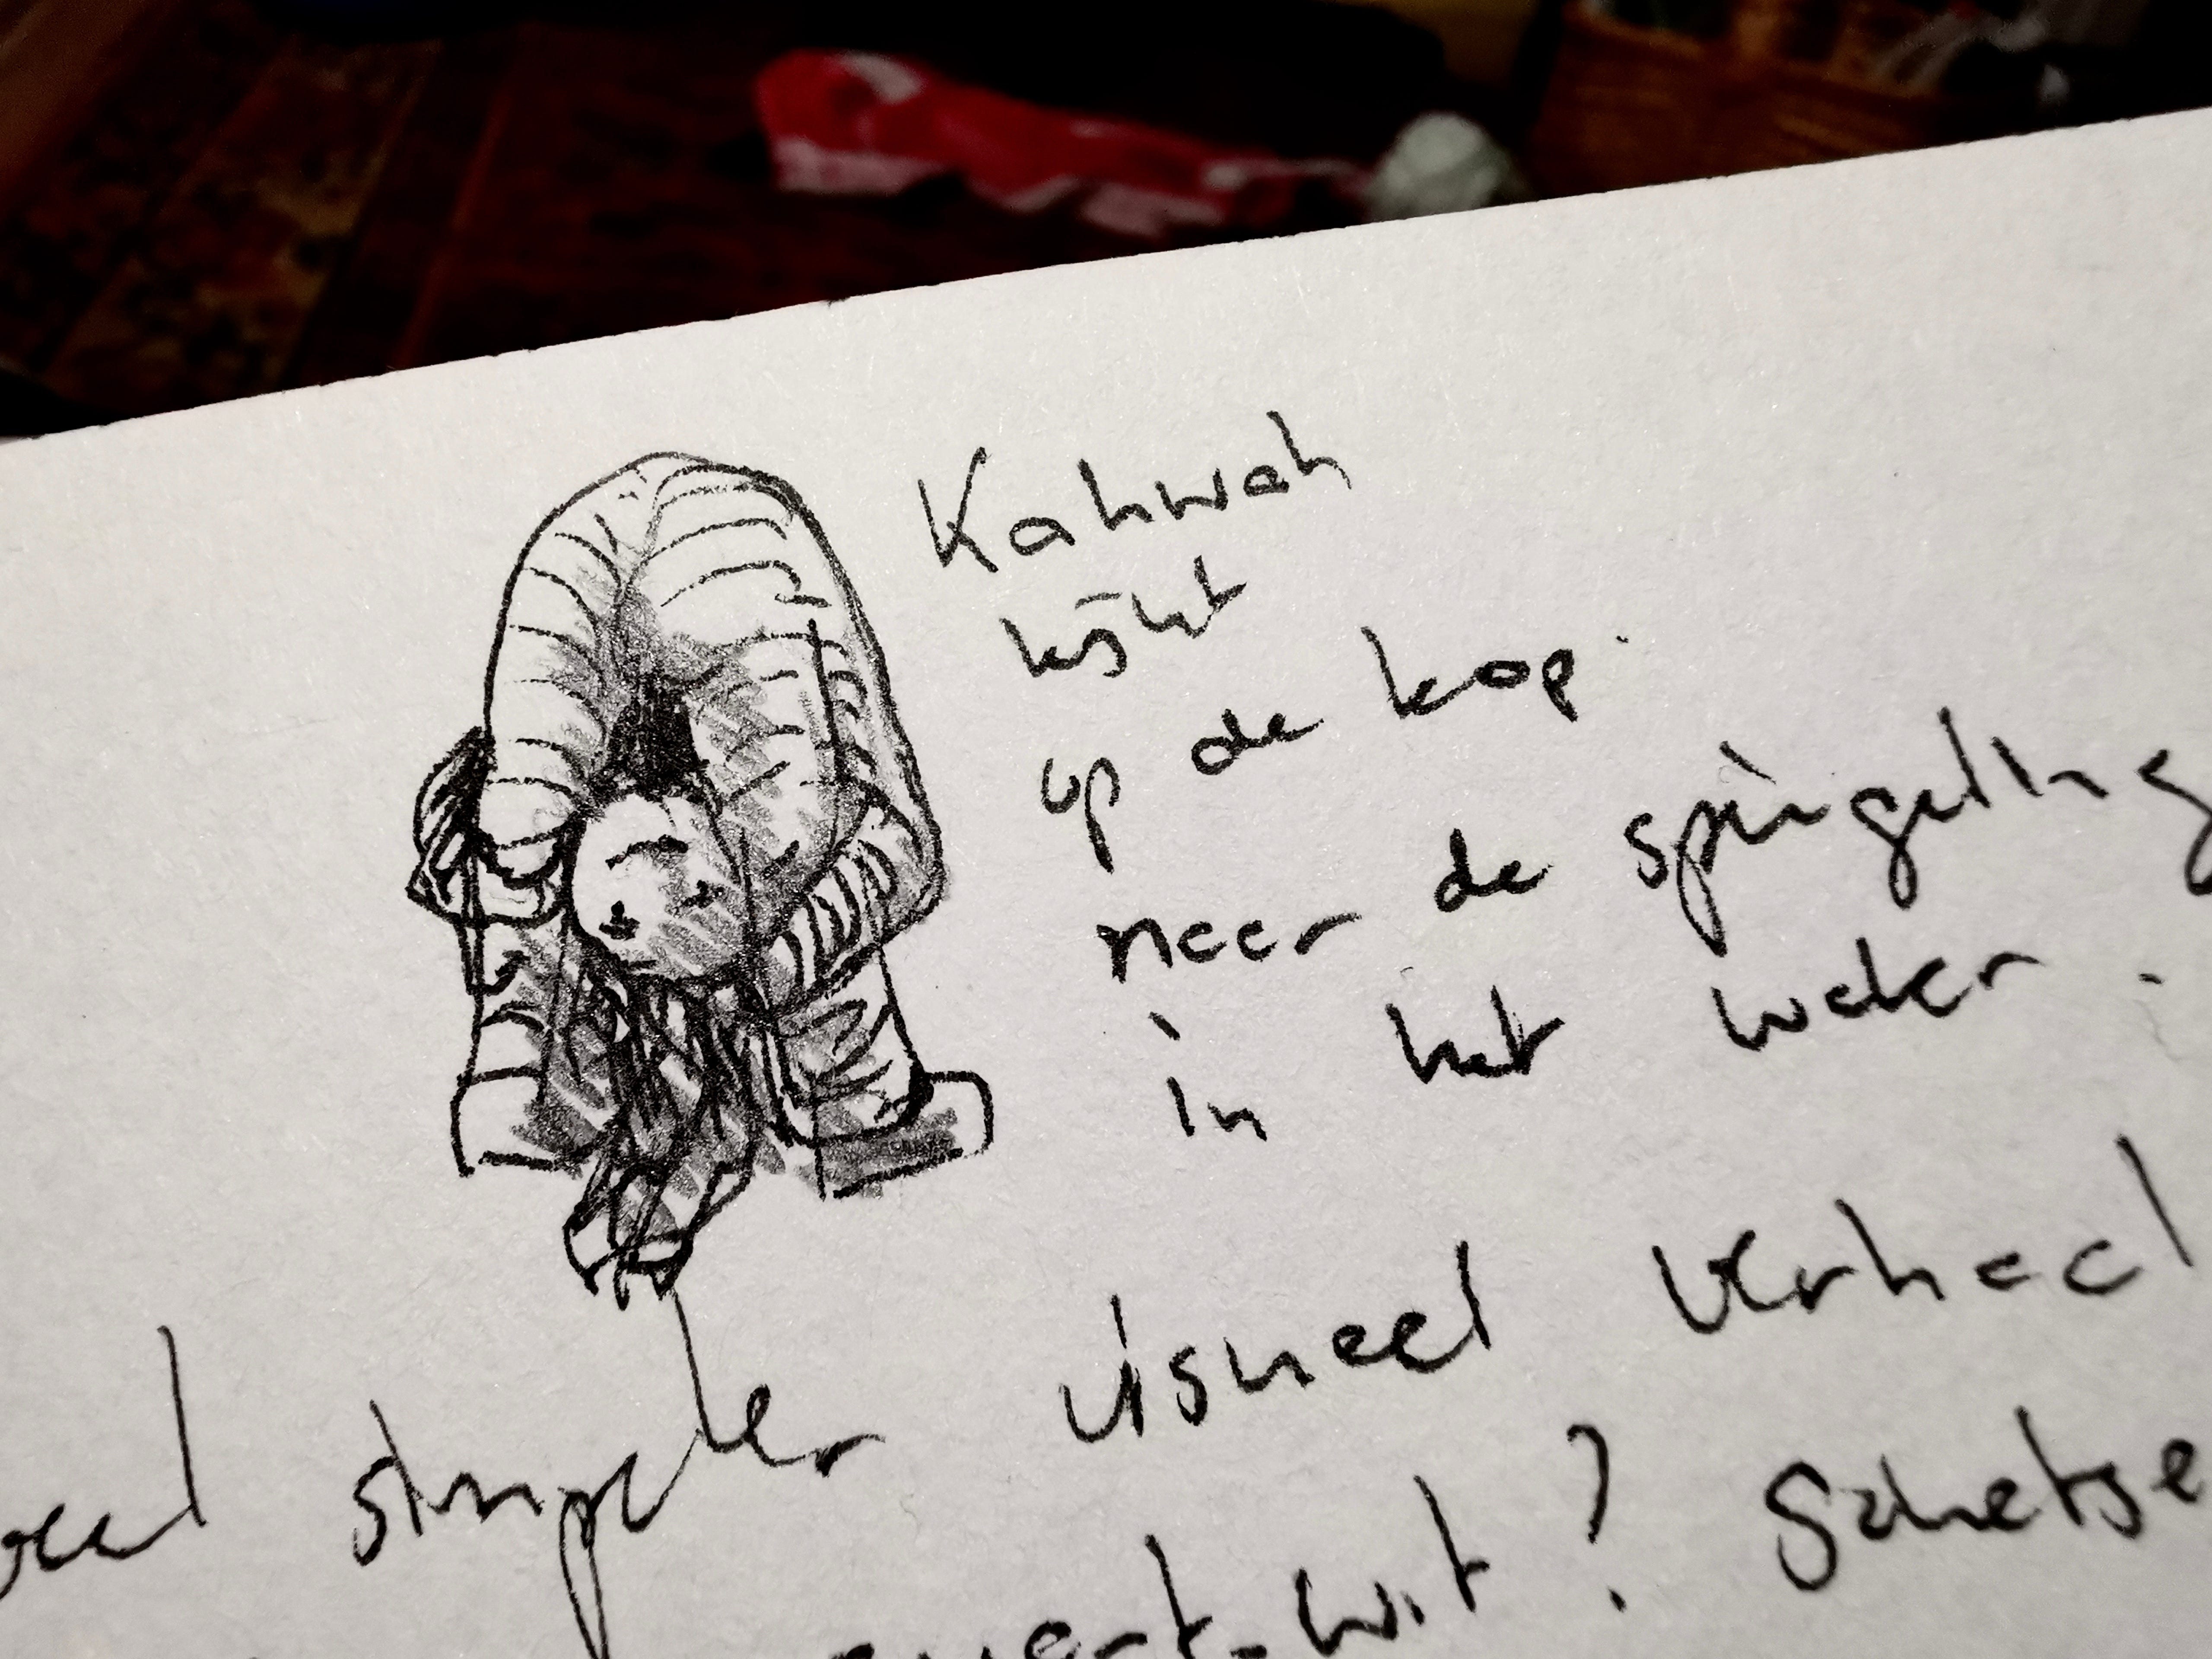 Kahwah
kijkt
op de kop
naar de spiegeling
in het water.
veel simpeler visueel verhaal
zwart-wit? Schetse